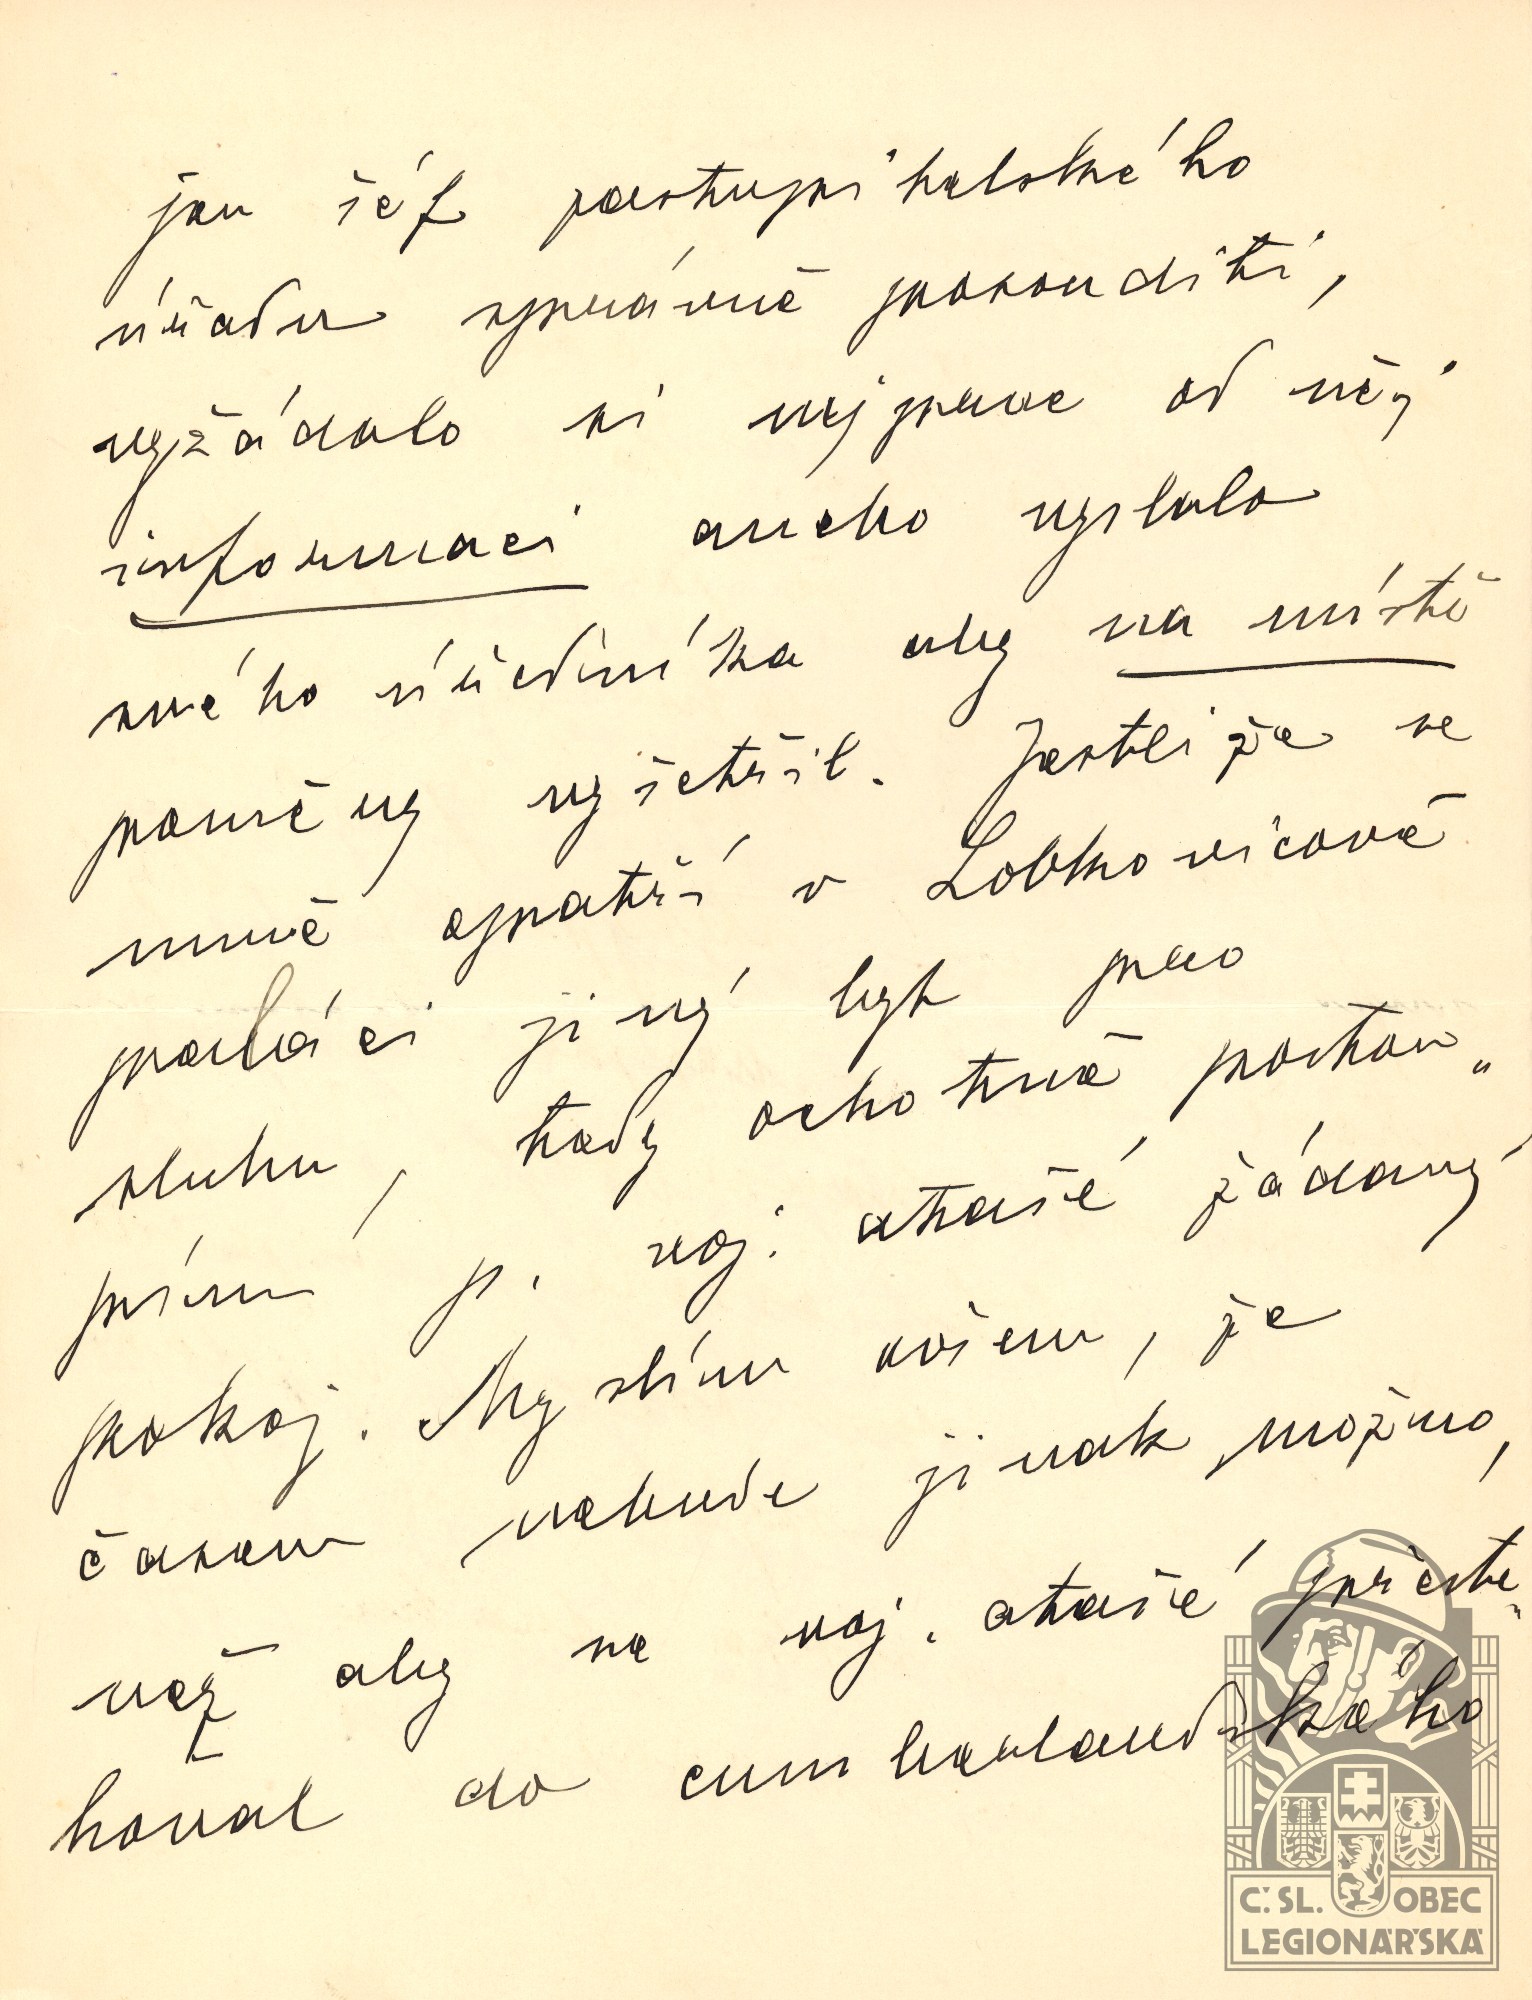 jen šéf zastupitelského
úřadu správně posouditi,
vyžádalo si nejprve od něj
informaci anebo vyslalo
svého úředníka aby na místě
poměry vyšetřil. Jestliže se
mně opatří v Lobkovicově
paláci jiný byt pro
sluhu, tedy ochotně postou„
pím p. voj. atašé žádaný
pokoj. Myslím ovšem, že
časem nebude jinak možno,
než aby se voj. atašé přestě„
hoval do cumberlandského
Č. SL. OBEC
LEGIONÁŘSKÁ